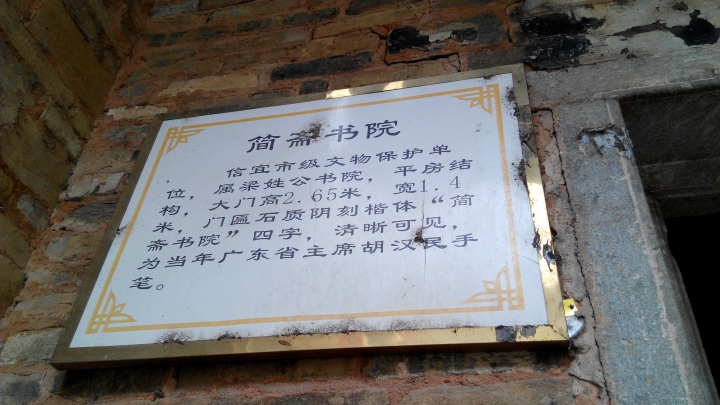 简斋书院
信宜市级文物保护单
位，属梁姓公书院，平房结
构，大门高2.65米，宽1.4
米，门匾石质阴刻楷体“简
斋书院”四字，清晰可见，
为当年广东省主席胡汉民手
笔。